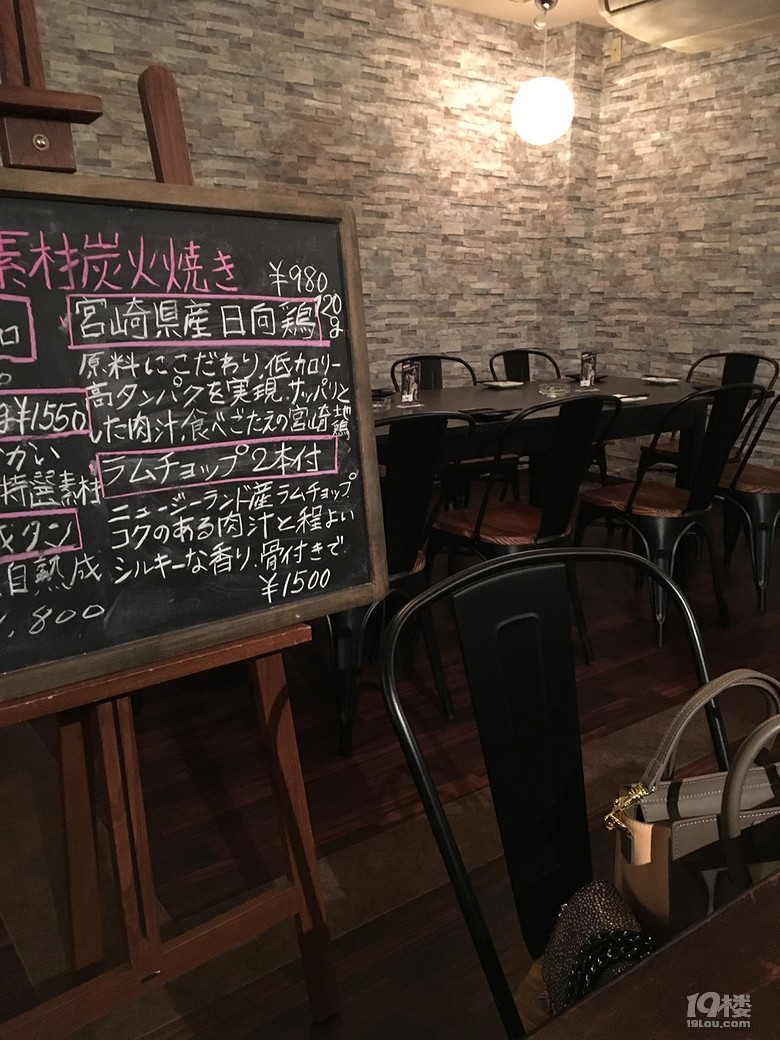 素材炭火焼き
¥980
宮崎県産日向鶏
120g
原料にこだわり、低カロリー
高タンパクを実現、サッパリと
した肉汁、食べごたえの宮崎地鶏
ラムチョップ2本付
ニュージーランド産ラムチョップ
コクのある肉汁と程よい
シルキーな香り、骨付きで
¥1500
¥1550
かい
特選素材
タン
自熟成
800
19楼
19lou.com